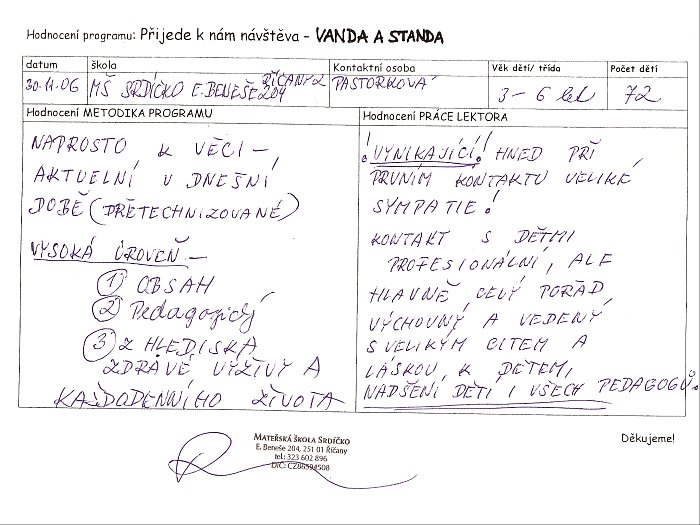 Hodnocení programu: Přijede k nám návštěva - VANDA A STANDA
datum škola Kontaktní osoba Věk dětí/ třída Počet dětí
30.11.06 MŠ SRDÍČKO E. BENEŠE 204 ŘÍČANY 2 PASTORKOVÁ 3 - 6 let 72
Hodnocení METODIKA PROGRAMU
NAPROSTO K VĚCI -
AKTUELNÍ V DNEŠNÍ
DOBĚ (PŘETECHNIZOVANÉ)
VYSOKÁ ÚROVEŇ -
1 OBSAH
2 Pedagogický
3 Z HLEDISKA
ZDRAVÉ VÝŽIVY A
KAŽDODENNÍHO ŽIVOTA
Hodnocení PRÁCE LEKTORA
! VYNIKAJÍCÍ! HNED PŘI
PRVNÍM KONTAKTU VELIKÉ
SYMPATIE!
KONTAKT S DĚTMI
PROFESIONÁLNÍ, ALE
HLAVNĚ, CELÝ POŘAD
VÝCHOVNÝ A VEDENÝ
S VELIKÝM CITEM A
LÁSKOU K DĚTEM,
NADŠENÍ DĚTÍ I VŠECH PEDAGOGŮ.
MATEŘSKÁ ŠKOLA SRDÍČKO
E. Beneše 204, 251 01 Říčany
tel.: 323 602 896
DIČ: CZ86594508
Děkujeme!